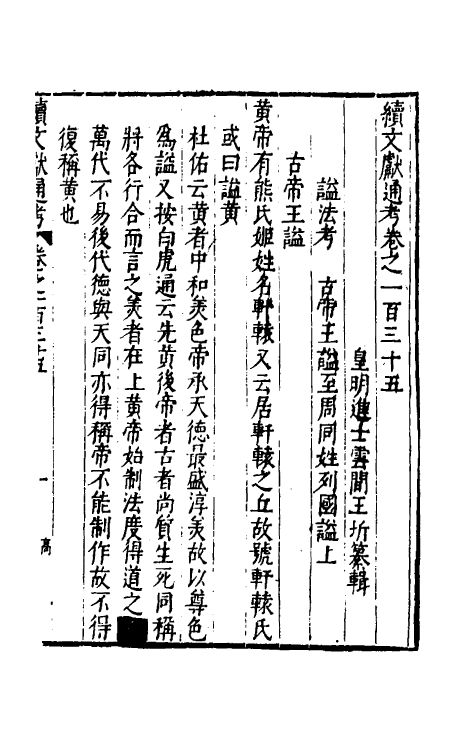 續文獻通考卷之一百三十五
皇明進士雲間王圻纂輯
謚法考　古帝王謚至周同姓列國謚上
古帝王謚
黄帝有熊氏姬姓名軒轅又云居軒轅之丘故號軒轅氏
或曰謚黄
杜佑云黄者中和美色帝承天德最盛淳美故以尊色
爲謚又按白虎通云先黄後帝者古者尚質生死同稱
將各行合而言之美者在上黄帝始制法度得道之
萬代不易後代德與天同亦得稱帝不能制作故不得
復稱黄也
續文獻通考　卷之一百三十五　一　高